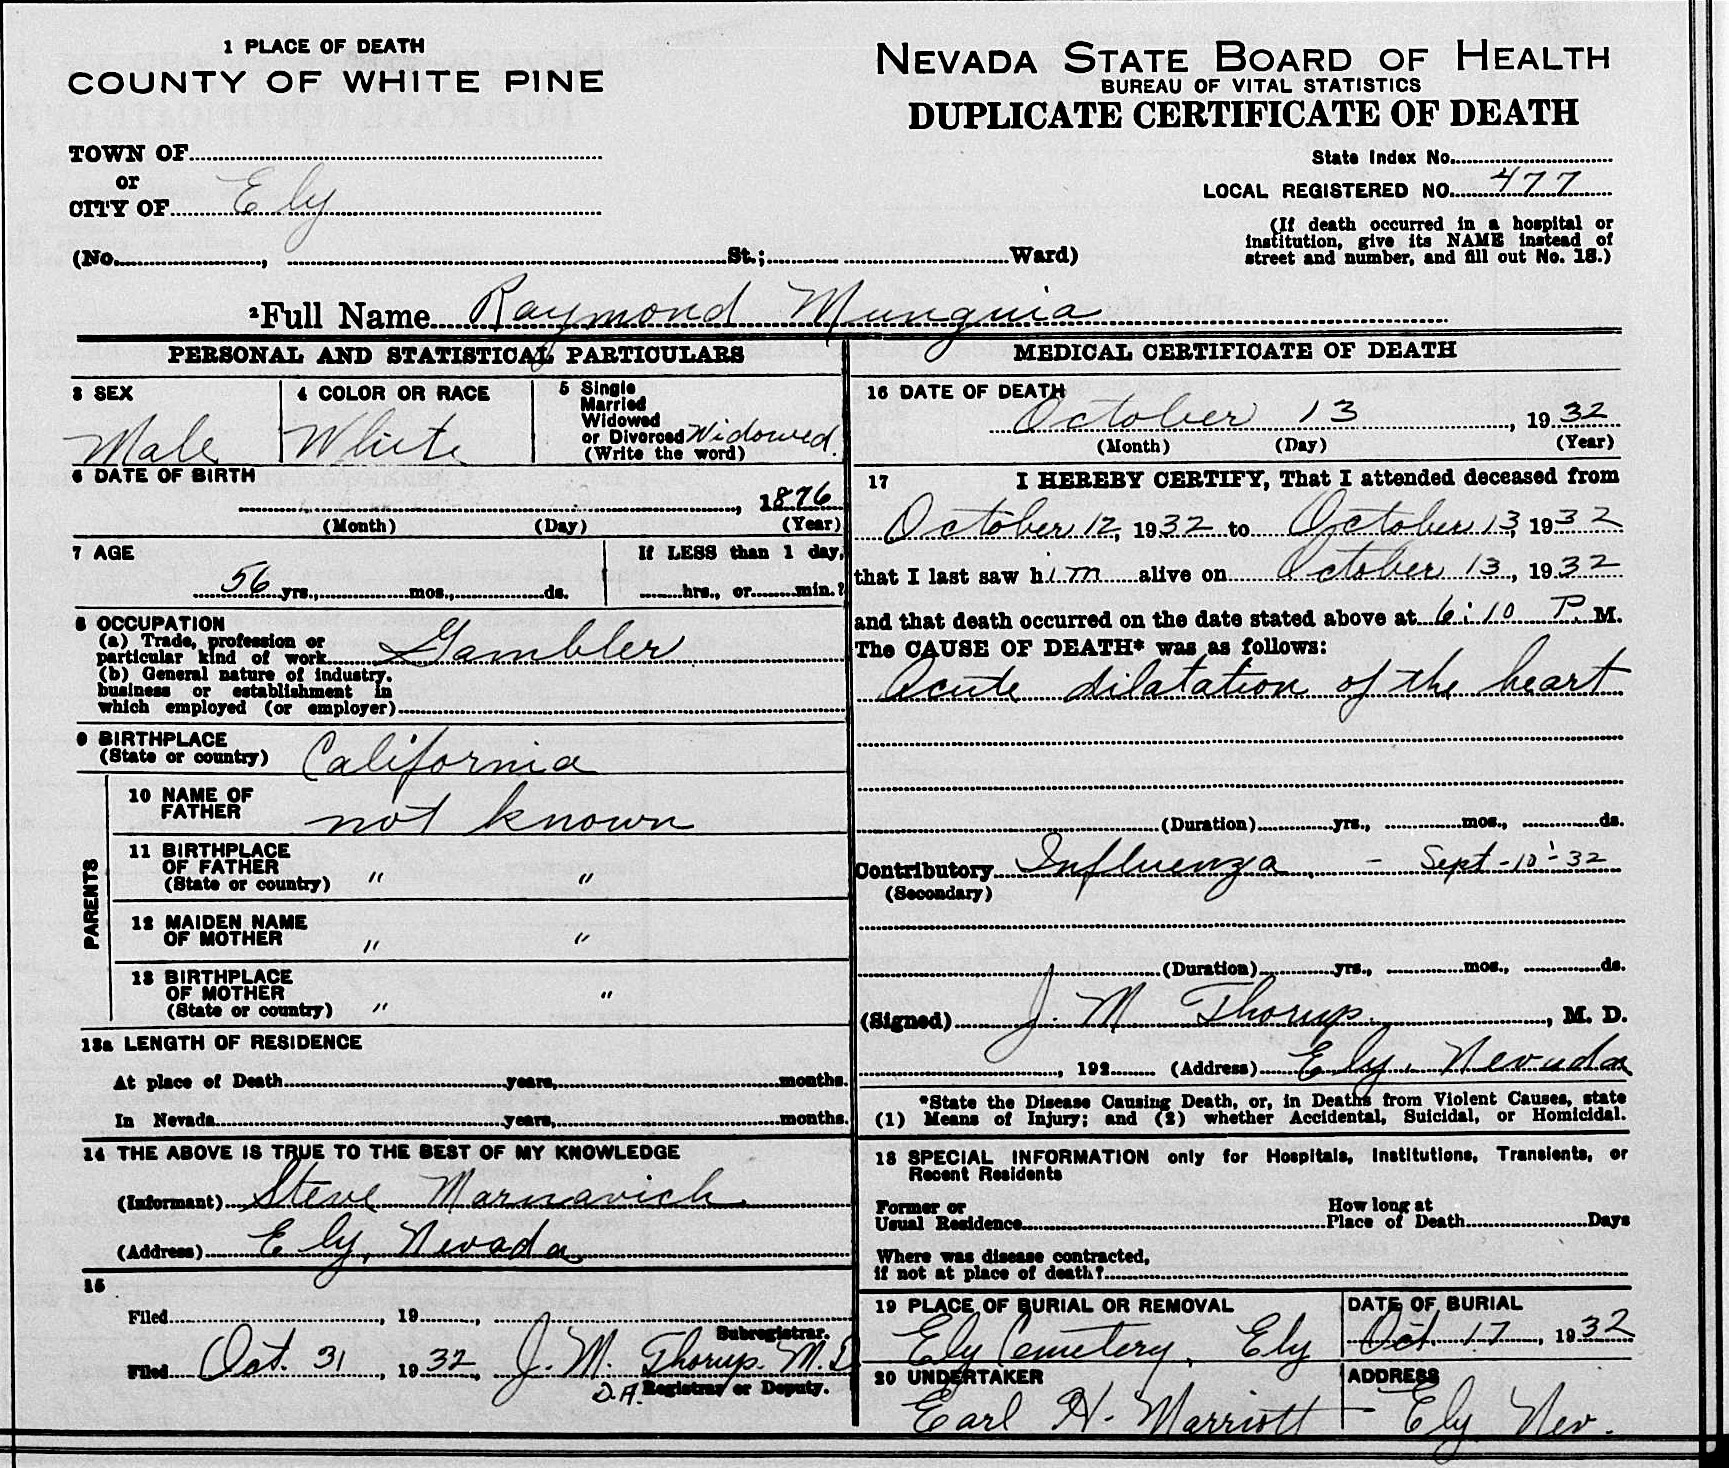 1 PLACE OF DEATH
COUNTY OF WHITE PINE
TOWN OF
or
CITY OF Ely
(No. , St.; Ward)
NEVADA STATE BOARD OF HEALTH
BUREAU OF VITAL STATISTICS
DUPLICATE CERTIFICATE OF DEATH
State Index No.
LOCAL REGISTERED NO. 477
(If death occurred in a hospital or
institution, give its NAME instead of
street and number, and fill out No. 18.)
2 Full Name Raymond Munguia
PERSONAL AND STATISTICAL PARTICULARS
3 SEX
Male
4 COLOR OR RACE
White
5 Single
Married
Widowed
or Divorced Widowed.
(Write the word)
6 DATE OF BIRTH
, 1876
(Month) (Day) (Year)
7 AGE
56 yrs., mos., ds.
If LESS than 1 day,
hrs., or min.?
8 OCCUPATION
(a) Trade, profession or
particular kind of work Gambler
(b) General nature of industry,
business or establishment in
which employed (or employer)
9 BIRTHPLACE
(State or country) California
PARENTS
10 NAME OF
FATHER not known
11 BIRTHPLACE
OF FATHER
(State or country) " "
12 MAIDEN NAME
OF MOTHER " "
13 BIRTHPLACE
OF MOTHER
(State or country) " "
13a LENGTH OF RESIDENCE
At place of Death years, months.
In Nevada years, months.
14 THE ABOVE IS TRUE TO THE BEST OF MY KNOWLEDGE
(Informant) Steve Marnavich
(Address) Ely, Nevada
15
Filed , 19 ,
Subregistrar.
Filed Oct. 31 , 1932, J. M. Thorup. M.D
D.A. Registrar or Deputy.
MEDICAL CERTIFICATE OF DEATH
16 DATE OF DEATH
October 13 , 1932
(Month) (Day) (Year)
17 I HEREBY CERTIFY, That I attended deceased from
October 12, 1932 to October 13, 1932
that I last saw him alive on October 13, 1932
and that death occurred on the date stated above at 6:10 P. M.
The CAUSE OF DEATH* was as follows:
Acute dilatation of the heart
(Duration) yrs., mos., ds.
Contributory Influenza - Sept-10-32
(Secondary)
(Duration) yrs., mos., ds.
(Signed) J. M Thorup. , M. D.
, 192 (Address) Ely, Nevada
*State the Disease Causing Death, or, in Deaths from Violent Causes, state
(1) Means of Injury; and (2) whether Accidental, Suicidal, or Homicidal.
18 SPECIAL INFORMATION only for Hospitals, Institutions, Transients, or
Recent Residents
Former or
Usual Residence
How long at
Place of Death Days
Where was disease contracted,
if not at place of death?
19 PLACE OF BURIAL OR REMOVAL
Ely Cemetery, Ely
DATE OF BURIAL
Oct 17 , 1932
20 UNDERTAKER
Earl H. Marriott
ADDRESS
Ely Nev.